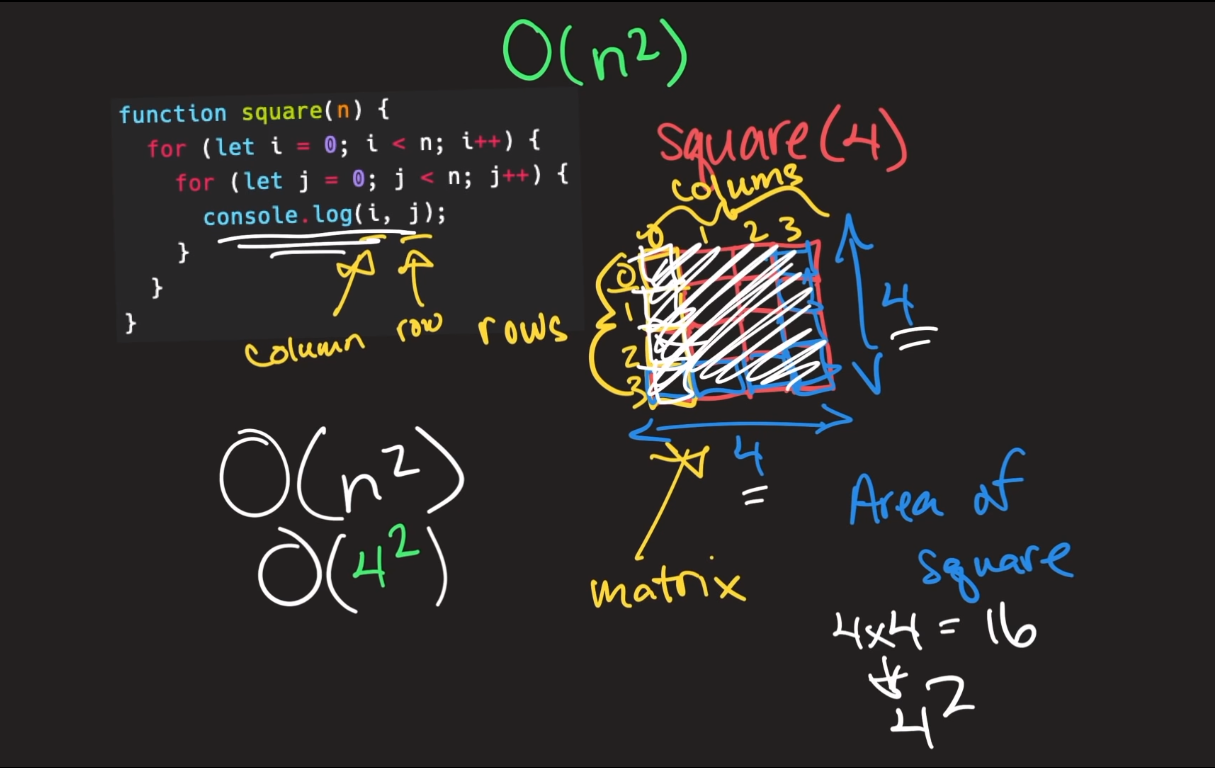 O(n²)
function square(n) {
for (let i = 0; i < n; i++) {
for (let j = 0; j < n; j++) {
console.log(i, j);
}
}
}
column row
square(4)
colums
0 1 2 3
rows
0
1
2
3
4
4
matrix
O(n²)
O(4²)
Area of
square
4x4 = 16
4²